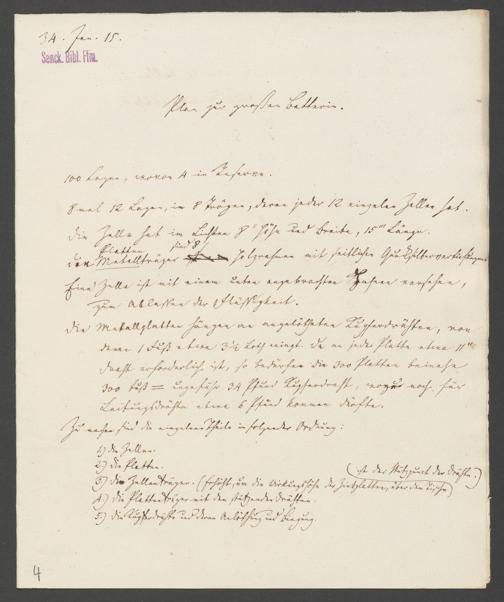 34. Jan. 15.
Senck. Bibl. Ffm.
Plan zur großen Batterie.
100 Lagen, wovon 4 in Reserve.
8 mal 12 Lagen, in 8 Trögen, deren jeder 12 einzelne Zellen hat.
Die Zelle hat im Lichten 8" Höhe und Breite, 15''' Länge.
Platten sind 8
den Metallträger Holzrahmen mit seitlichen
Eine Zelle ist mit einem unten angebrachten Hahnen versehen,
zum Ablassen der Flüssigkeit.
Die Metallplatten hängen an angelötheten Kupferdrähten, von
denen 1 Fuß etwa 3½ Loth wiegt. Da an jede Platte etwa 11"
Draht erforderlich ist, so bedürfen die 300 Platten beinahe
300 Fuß = ungefähr 34 Pfund Kupferdraht, wozu noch für
Leitungsdrähte etwa 6 Pfund kommen dürften.
Zu machen sind die einzelnen Theile in folgender Ordnung:
1) die Zellen.
2) die Platten.
(ist der Stützpunct der Drähte.)
3) die Zellenträger. (Erhöht, um die der Zinkplatten, über den)
4) die Plattenträger mit den stützenden Drähten.
5) die Kupferdrähte und deren Anlöthung und Biegung.
4